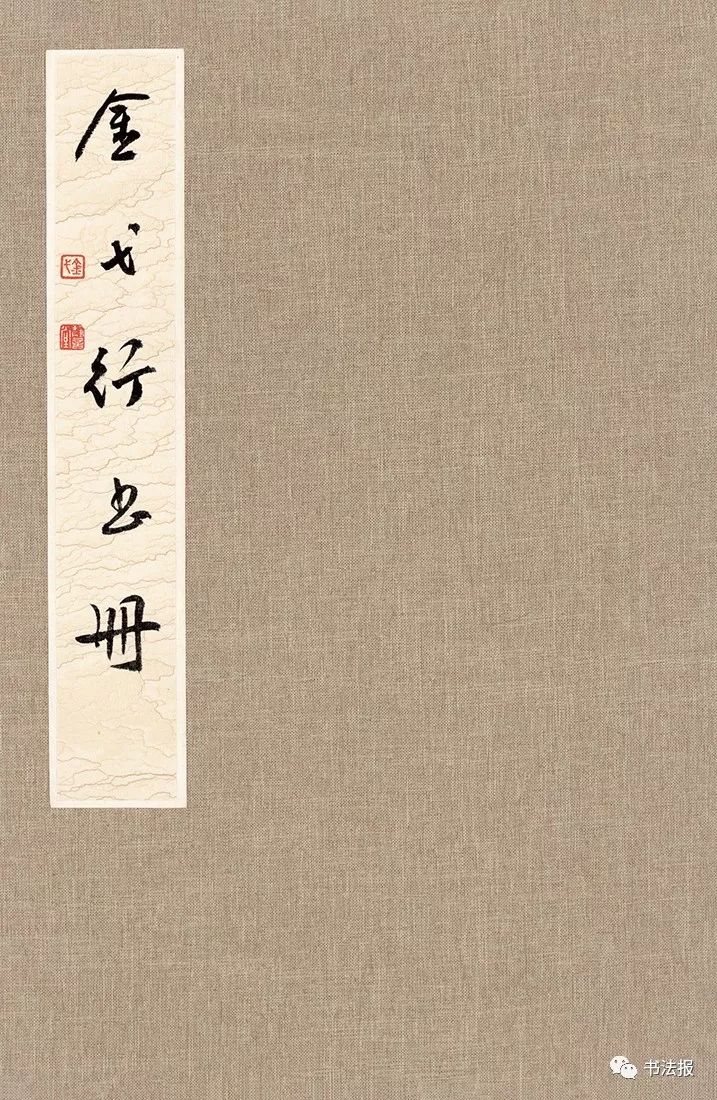 金戈行书册
书法报